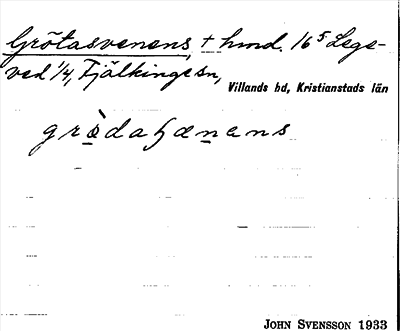 Grötasvenens, + hmd. 16⁵ Lege-
ved 1/4, Fjälkinge sn,
Villands hd, Kristianstads län
grɑ̀daɧænens
JOHN SVENSSON 1933